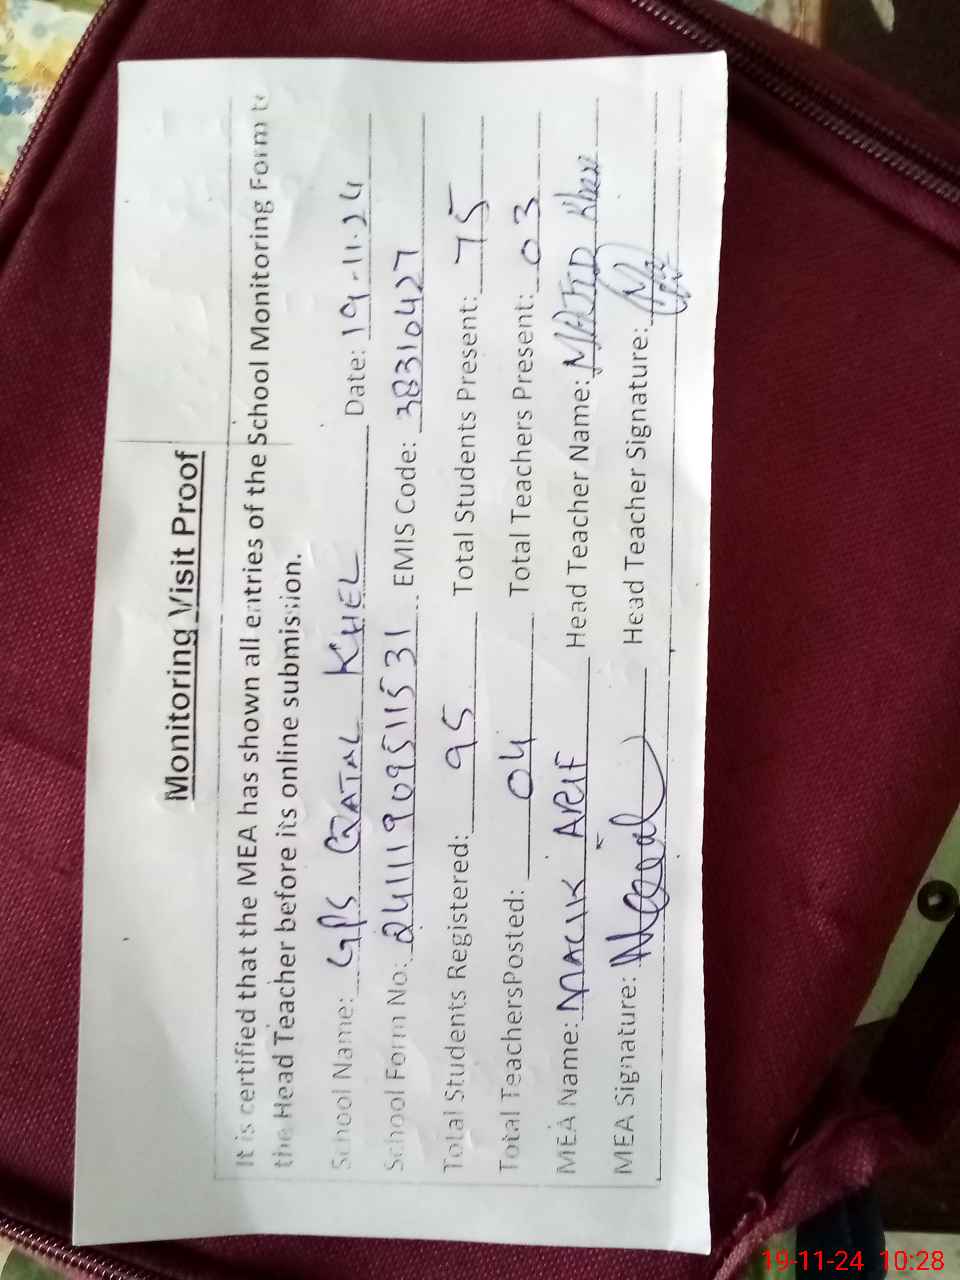 Monitoring Visit Proof
It is certified that the MEA has shown all entries of the School Monitoring Form to
the Head Teacher before its online submission.
School Name: GPS GATAL KHEL Date: 19-11-24
School Form No: 24111909511531 EMIS Code: 38310427
Total Students Registered: 95 Total Students Present: 75
Total TeachersPosted: 04 Total Teachers Present: 03
MEA Name: MALIK ARIF Head Teacher Name: MAJID Khan
MEA Signature: Head Teacher Signature:
19-11-24 10:28